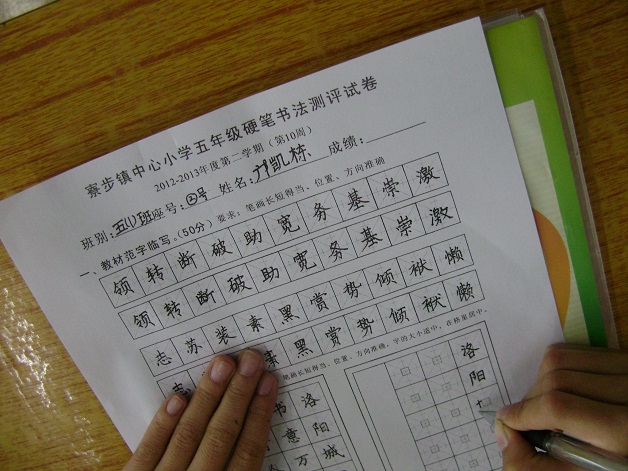 寮步镇中心小学五年级硬笔书法测评试卷
2012-2013年度第二学期(第10周)
班别:五(1)班座号:②号 姓名:凯栋 成绩:
一、教材范字临写。(50分)要求:笔画长短得当,位置、方向准确
领转断破助宽务基崇激
领转断破助宽务基崇激
志苏装素黑赏势倾袱懒
志素黑赏势倾袱懒
画长短得当,位置、方向准确,字的大小适中,在格里居中。
书洛
意阳
万城
洛
阳